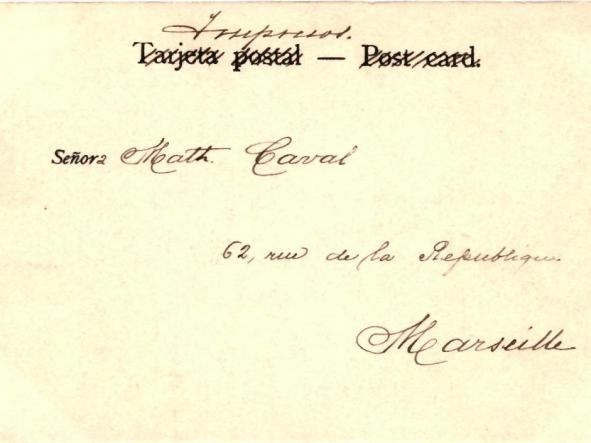 Impresos.
Tarjeta postal — Post card.
Señora Math. Caval
62, rue de la Republique
Marseille